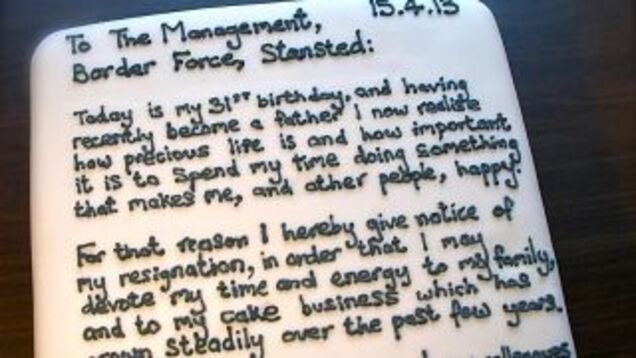 15.4.13
To The Management,
Border Force, Stansted:
Today is my 31ST birthday, and having
recently become a father I now realise
how precious life is and how important
it is to spend my time doing something
that makes me, and other people, happy.
For that reason I hereby give notice of
my resignation, in order that I may
devote my time and energy to my family,
and to my cake business which has
grown steadily over the past few years.